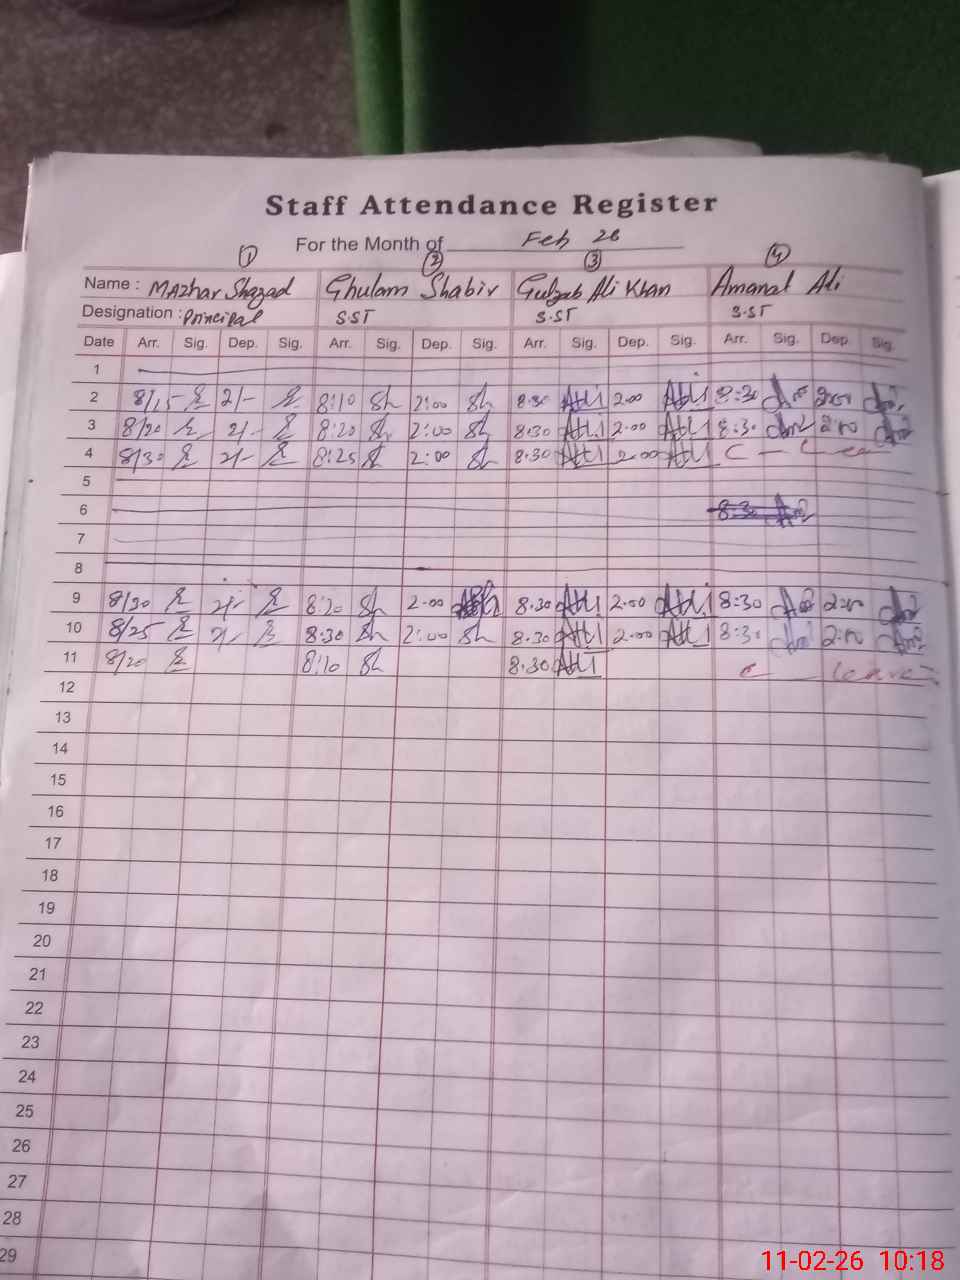 Staff Attendance Register
For the Month of Feb 26
1 2 3 4
Name : MAzhar Shazad Ghulam Shabir Gulzab Ali Khan Amanat Ali
Designation : Principal S.ST S.ST S.ST
Date Arr. Sig. Dep. Sig. Arr. Sig. Dep. Sig. Arr. Sig. Dep. Sig. Arr. Sig. Dep. Sig.
1
2 8/15 2/- 8:10 Sh 2:00 Sh 8.30 2.00 8:30 2:00
3 8/20 2/- 8:20 Sh 2:00 Sh 8.30 2.00 8:30 2:00
4 8/30 2/- 8:25 Sh 2:00 Sh 8.30 2.00 C
5
6 8:30
7
8
9 8/20 2/- 8:20 Sh 2.00 Sh 8.30 2.00 8:30 2:00
10 8/25 2/- 8:30 Sh 2:00 Sh 8.30 2.00 8:30 2:00
11 8/20 8:10 Sh 8.30 C leave
12
13
14
15
16
17
18
19
20
21
22
23
24
25
26
27
28
29
11-02-26 10:18